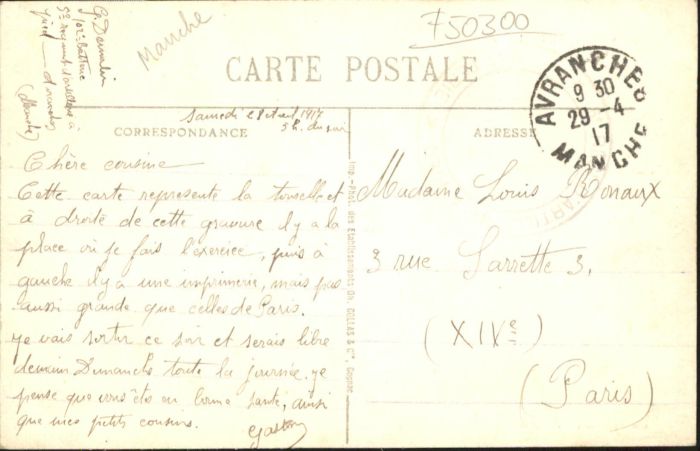 G.
10e batterie
2e regiment d'artillerie à
pied
(Manche)
Manche
F50300
CARTE POSTALE
AVRANCHES
9 30
29 - 4
17
MANCHE
Samedi 28 Avril 1917
5h. du soir
CORRESPONDANCE
ADRESSE
Chère cousine
Cette carte represente la et
à droite de cette gravure il y a la
place où je fais l'exercice, puis à
gauche il y a une imprimerie, mais pas
aussi grande que celles de Paris.
je vais sortir ce soir et serais libre
demain Dimanche toute la journée. je
pense que vous êtes en bonne santé, ainsi
que mes petits cousins.
Gaston
Imp.-Phot. des Etablissements Ch. COLLAS & Cie, Cognac
Madame Louis Ronaux
3 rue Sarrette 3.
(XIVe)
(Paris)